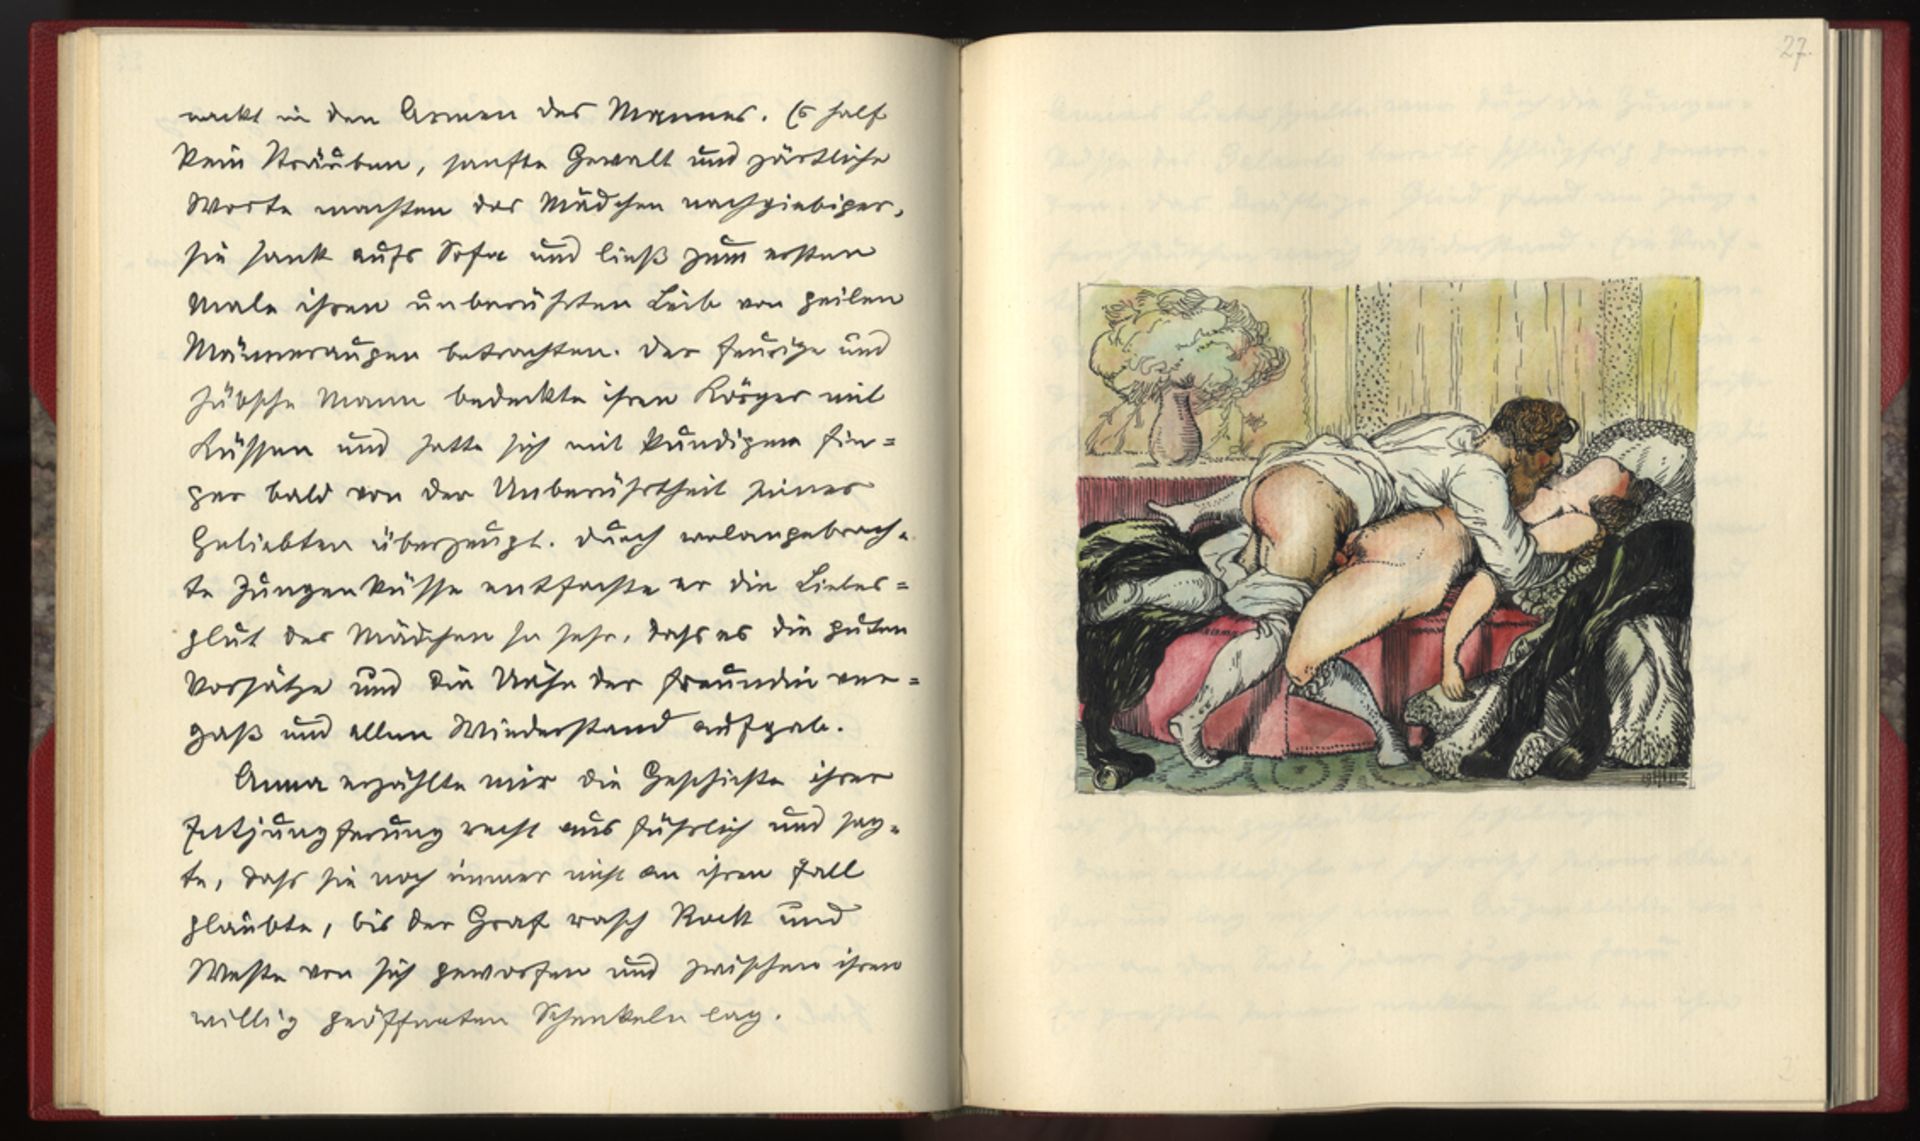 nackt in den Armen des Mannes. Es half
kein Sträuben, sanfte Gewalt und zärtliche
Worte machten das Mädchen nachgiebiger,
sie sank aufs Sofa und ließ zum ersten
Male ihren unberührten Leib von geilen
Männeraugen betrachten. Der feurige und
hübsche Mann bedeckte ihren Körper mit
Küssen und hatte sich mit kundigem Fin=
ger bald von der Unberührtheit seiner
Geliebten überzeugt. Durch wolangebrach-
te Zungenküsse entfachte er die Liebes=
glut des Mädchen so sehr, dass es die guten
Vorsätze und die Nähe der Freundin ver=
gaß und allen Wiederstand aufgab.
Anna erzählte mir die Geschichte ihrer
Entjungferung recht ausführlich und sag=
te, dass sie noch immer nicht an ihren Fall
glaubte, bis der Graf rasch Rock und
Weste von sich geworfen und zwischen ihren
willig geöffneten Schenkeln lag.
27.